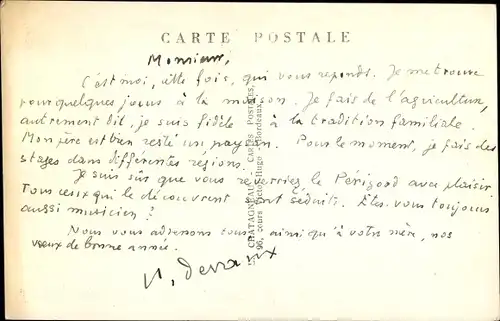 CARTE POSTALE
Monsieur,
C'est moi, cette fois, qui vous reponds. Je me trouve
pour quelques jours à la maison. Je fais de l'agriculture,
autrement dit, je suis fidèle à la tradition familiale.
Mon père est bien resté un paysan. Pour le moment, je fais des
stages dans différentes régions.
Je suis sûr que vous reverriez le Périgord avec plaisir
Tous ceux qui le découvrent sont séduits. Etes-vous toujours
aussi musicien ?
Nous vous adressons tous, ainsi qu'à votre mère, nos
vœux de bonne année.
CHATAGNEAU, CARTES POSTALES,
96, cours Victor-Hugo - Bordeaux